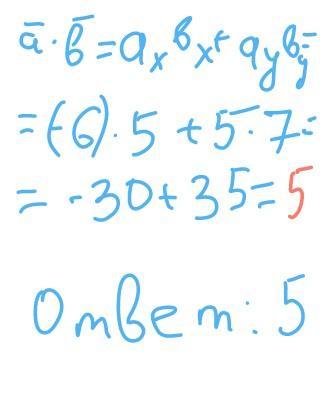 ā · b̄ = aₓbₓ + a_yb_y =
= (-6) · 5 + 5 · 7 =
= -30 + 35 = 5
Ответ: 5